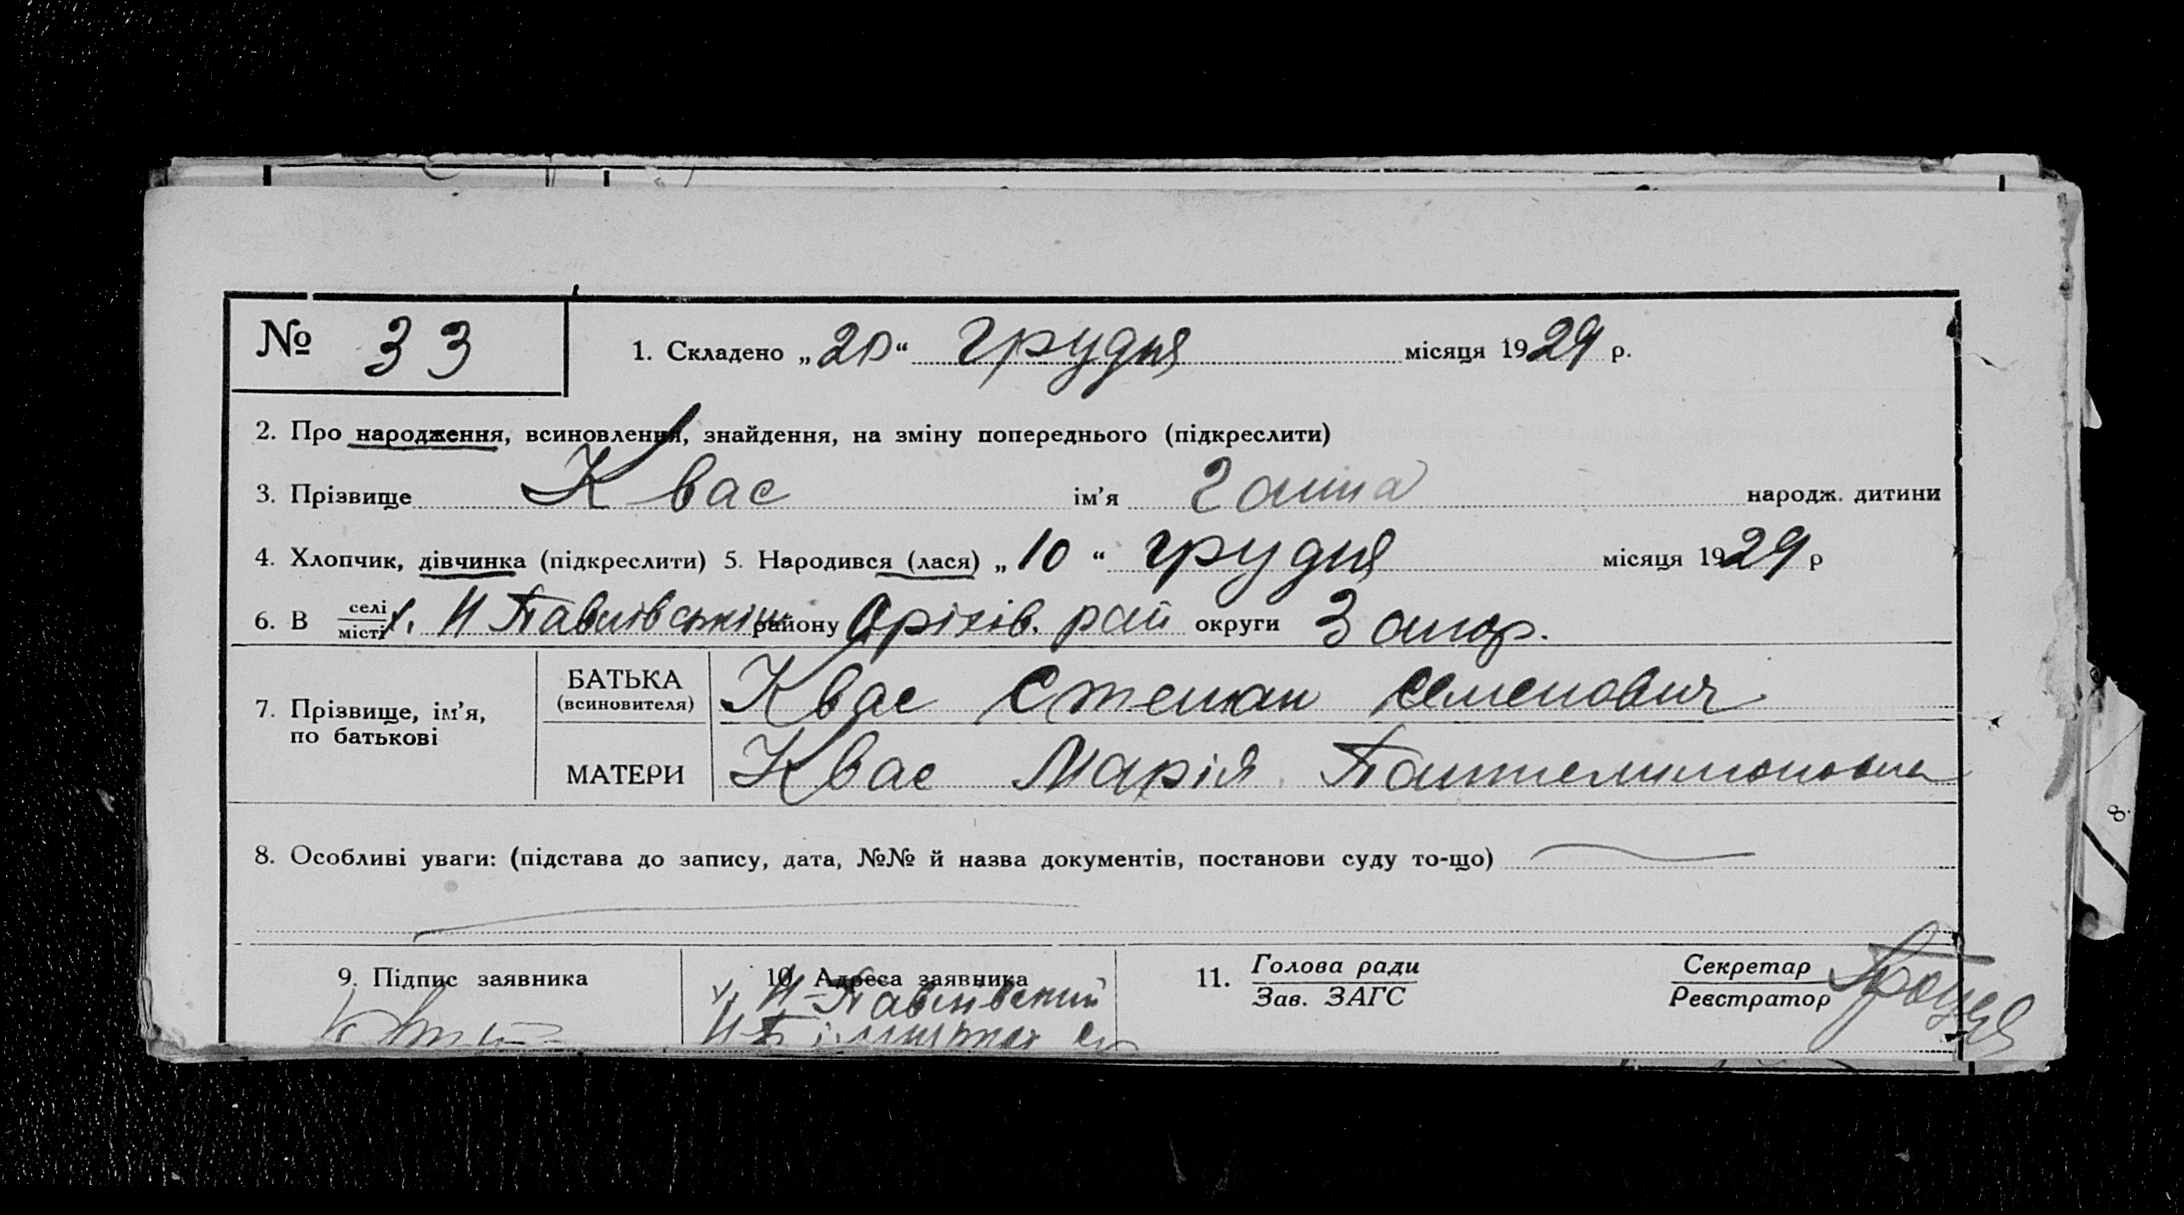 № 33
1. Складено „20“ грудня місяця 1929 р.
2. Про народження, всиновлення, знайдення, на зміну попереднього (підкреслити)
3. Прізвище Квас ім’я Ганна народж. дитини
4. Хлопчик, дівчинка (підкреслити) 5. Народився (лася) „10“ грудня місяця 1929 р
6. В селі місті с. Н Павлівський району Оріхів. рай округи Запор.
7. Прізвище, ім’я, по батькові
БАТЬКА (всиновителя) Квас Степан Семенович
МАТЕРИ Квас Марія Пантелимоновна
8. Особливі уваги: (підстава до запису, дата, №№ й назва документів, постанови суду то-що)
9. Підпис заявника
10. Адреса заявника
Н-Павлівський
11. Голова ради
Зав. ЗАГС
Секретар
Реєстратор
8.